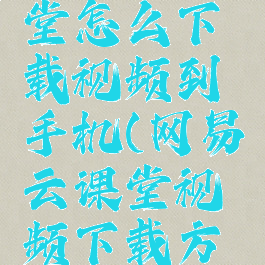 堂怎么下
载视频到
手机(网易
云课堂视
频下载方